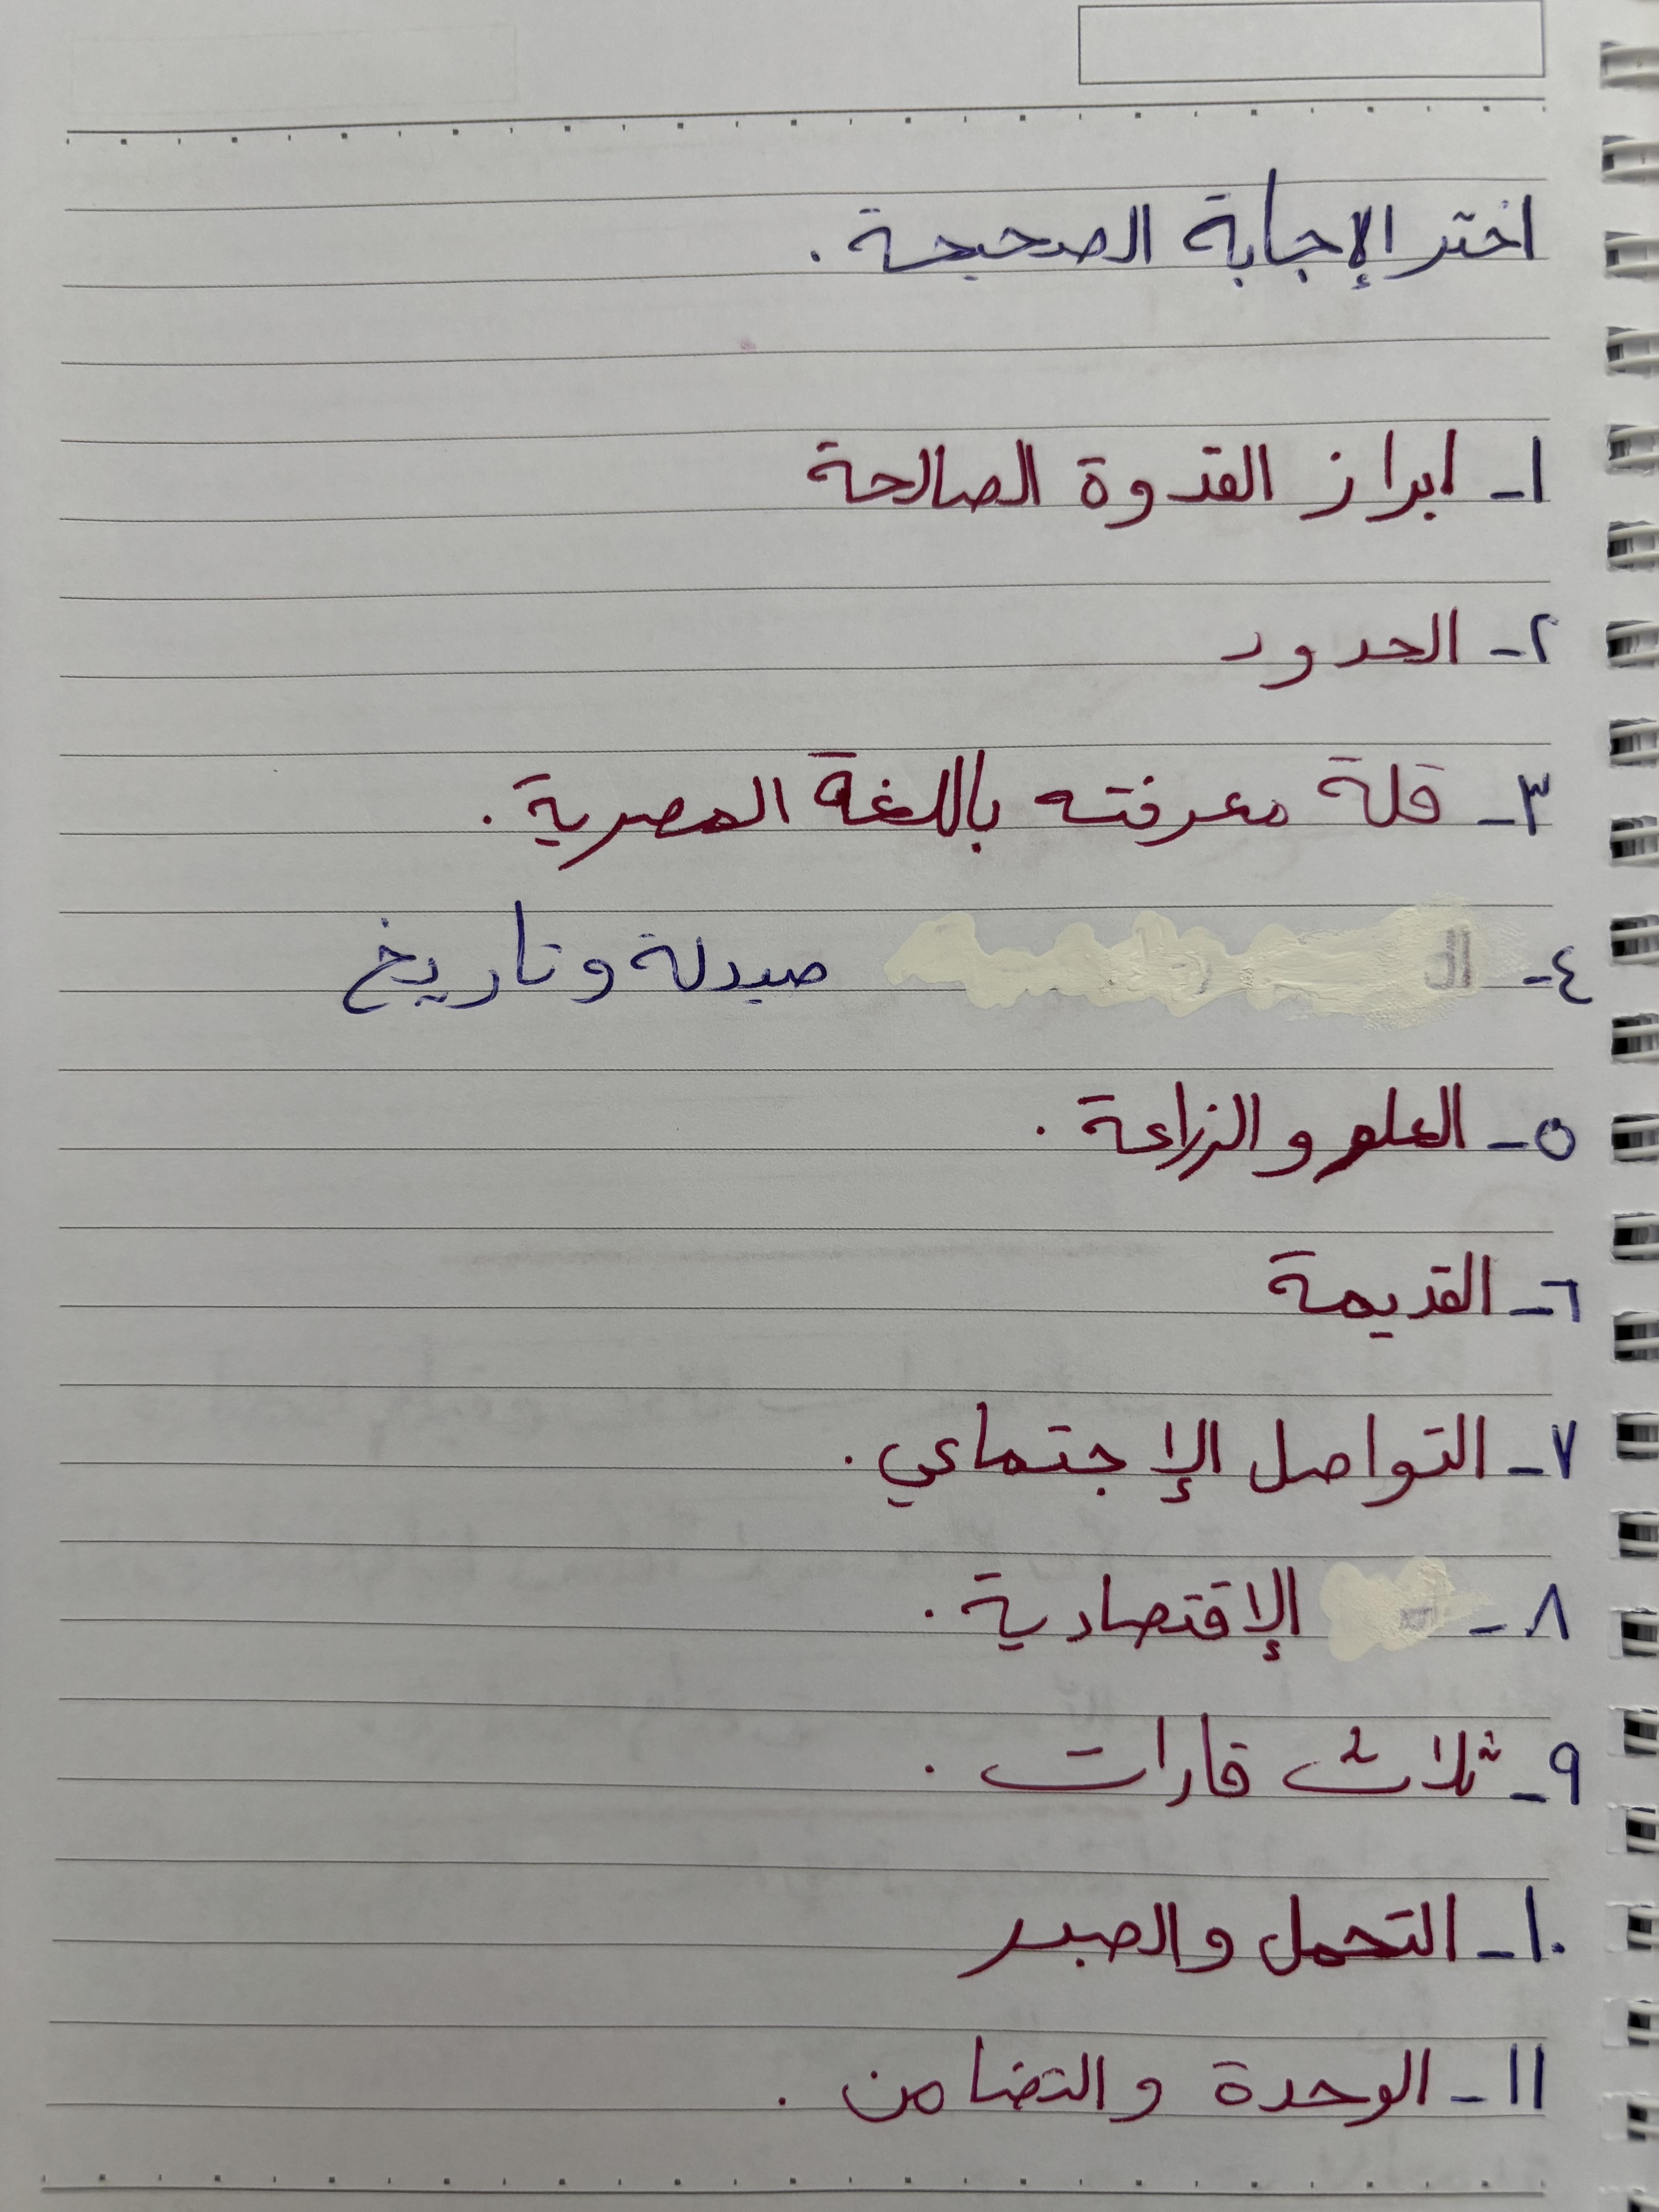 اختر الإجابة الصحيحة .
١- ابراز القدوة الصالحة
٢- الحدود
٣- قلة معرفته باللغة المصرية .
٤- صيدلة وتاريخ
٥- العلم والزراعة .
٦- القديمة
٧- التواصل الإجتماعي .
٨- الإقتصادية .
٩- ثلاث قارات .
١٠- التحمل والصبر
١١- الوحدة والتضامن .